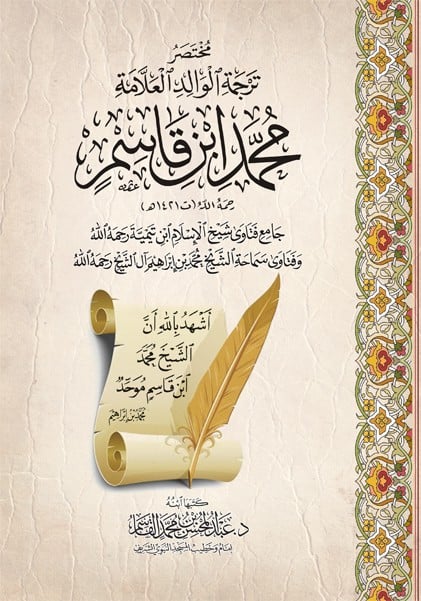 مُخْتَصَرُ
تَرْجَمَةِ الْوَالِدِ الْعَلَّامَةِ
مُحَمَّدِ ابْنِ قَاسِمٍ
رَحِمَهُ اللهُ (ت ١٤٢١هـ)
جَامِعِ فَتَاوَى شَيْخِ الْإِسْلَامِ ابْنِ تَيْمِيَّةَ رَحِمَهُ اللهُ
وَفَتَاوَى سَمَاحَةِ الشَّيْخِ مُحَمَّدِ بْنِ إِبْرَاهِيمَ آلِ الشَّيْخِ رَحِمَهُ اللهُ
أَشْهَدُ بِاللهِ أَنَّ
الشَّيْخَ مُحَمَّدَ
ابْنَ قَاسِمٍ مُوَحِّدٌ
مُحَمَّدُ بْنُ إِبْرَاهِيمَ
كَتَبَهَا ابْنُهُ
د. عَبْدُ الْمُحْسِنِ بْنُ مُحَمَّدٍ الْقَاسِمُ
إِمَامُ وَخَطِيبُ الْمَسْجِدِ النَّبَوِيِّ الشَّرِيفِ